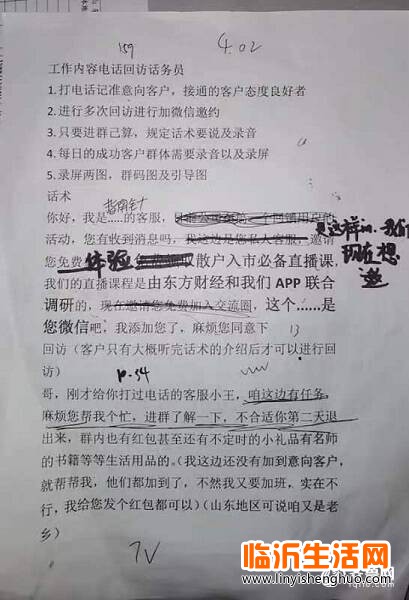 159
4.02
工作内容电话回访话务员
1.打电话记准意向客户，接通的客户态度良好者
2.进行多次回访进行加微信邀约
3.只要进群己算，规定话术要说及录音
4.每日的成功客户群体需要录音以及录屏
5.录屏两图，群码图及引导图
话术
指南针
你好，我是……的客服，
是这样的，我们
活动，您有收到消息吗，我这边是您私人客服，邀请
现在想
您免费体验散户入市必备直播课，
邀
我们的直播课程是由东方财经和我们 APP 联合
调研的，现在邀请您免费加入交流圈，这个……是
您微信吧，我添加您了，麻烦您同意下
13
回访（客户只有大概听完话术的介绍后才可以进行回
访）
10.34
哥，刚才给你打过电话的客服小王，咱这边有任务，
麻烦您帮我个忙，进群了解一下，不合适你第二天退
出来，群内也有红包甚至还有不定时的小礼品有名师
的书籍等等生活用品的。（我这边还没有加到意向客户，
就帮帮我，他们都加到了，不然我又要加班，实在不
行，我给您发个红包都可以）（山东地区可说咱又是老
乡）
7V
临沂生活网
www.linyishenghuo.com